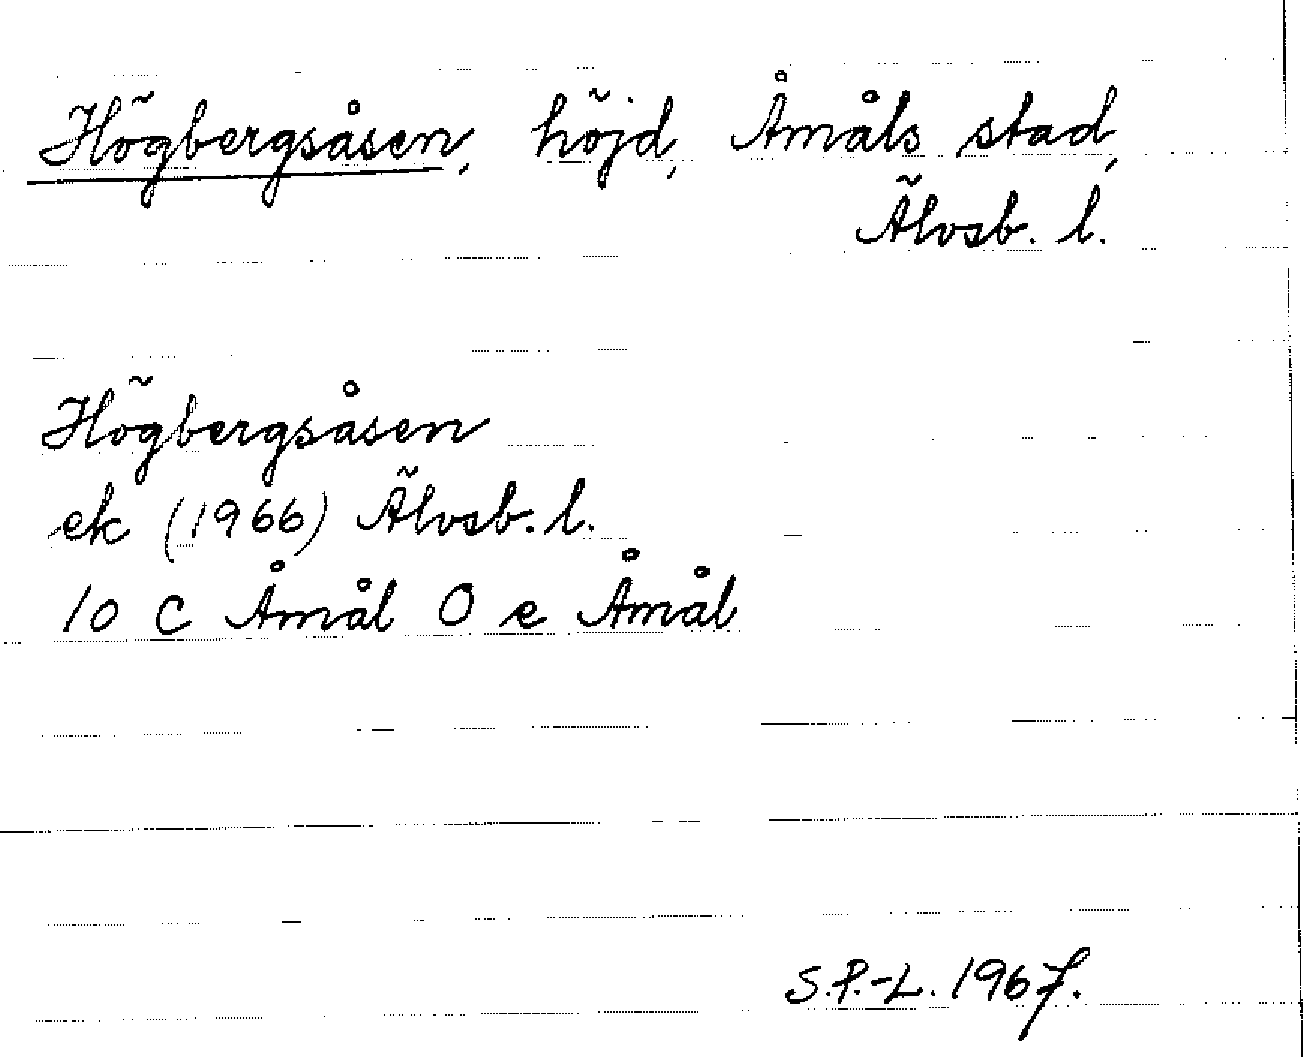 Högbergsåsen, höjd, Åmåls stad,
Älvsb. l.
Högbergsåsen
ek (1966) Älvsb. l.
10 C Åmål O e Åmål
S.P.-L. 1967.